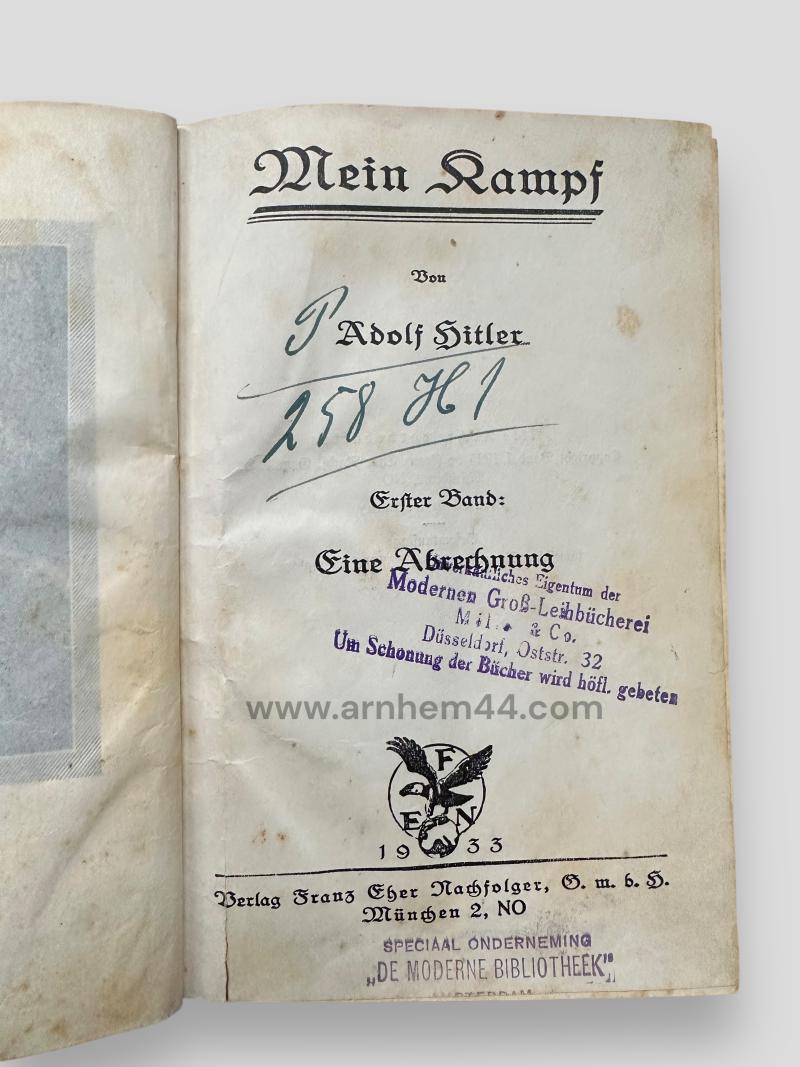 Mein Kampf
Von
P Adolf Hitler
258 H1
Erster Band:
Eine Abrechnung
Eigentum der
Modernen Groß-Leihbücherei
& Co.
Düsseldorf, Oststr. 32
Um Schonung der Bücher wird höfl. gebeten
www.arnhem44.com
F
E N
1933
Verlag Franz Eher Nachfolger, G. m. b. H.
München 2, NO
SPECIAAL ONDERNEMING
„DE MODERNE BIBLIOTHEEK"
AMSTERDAM